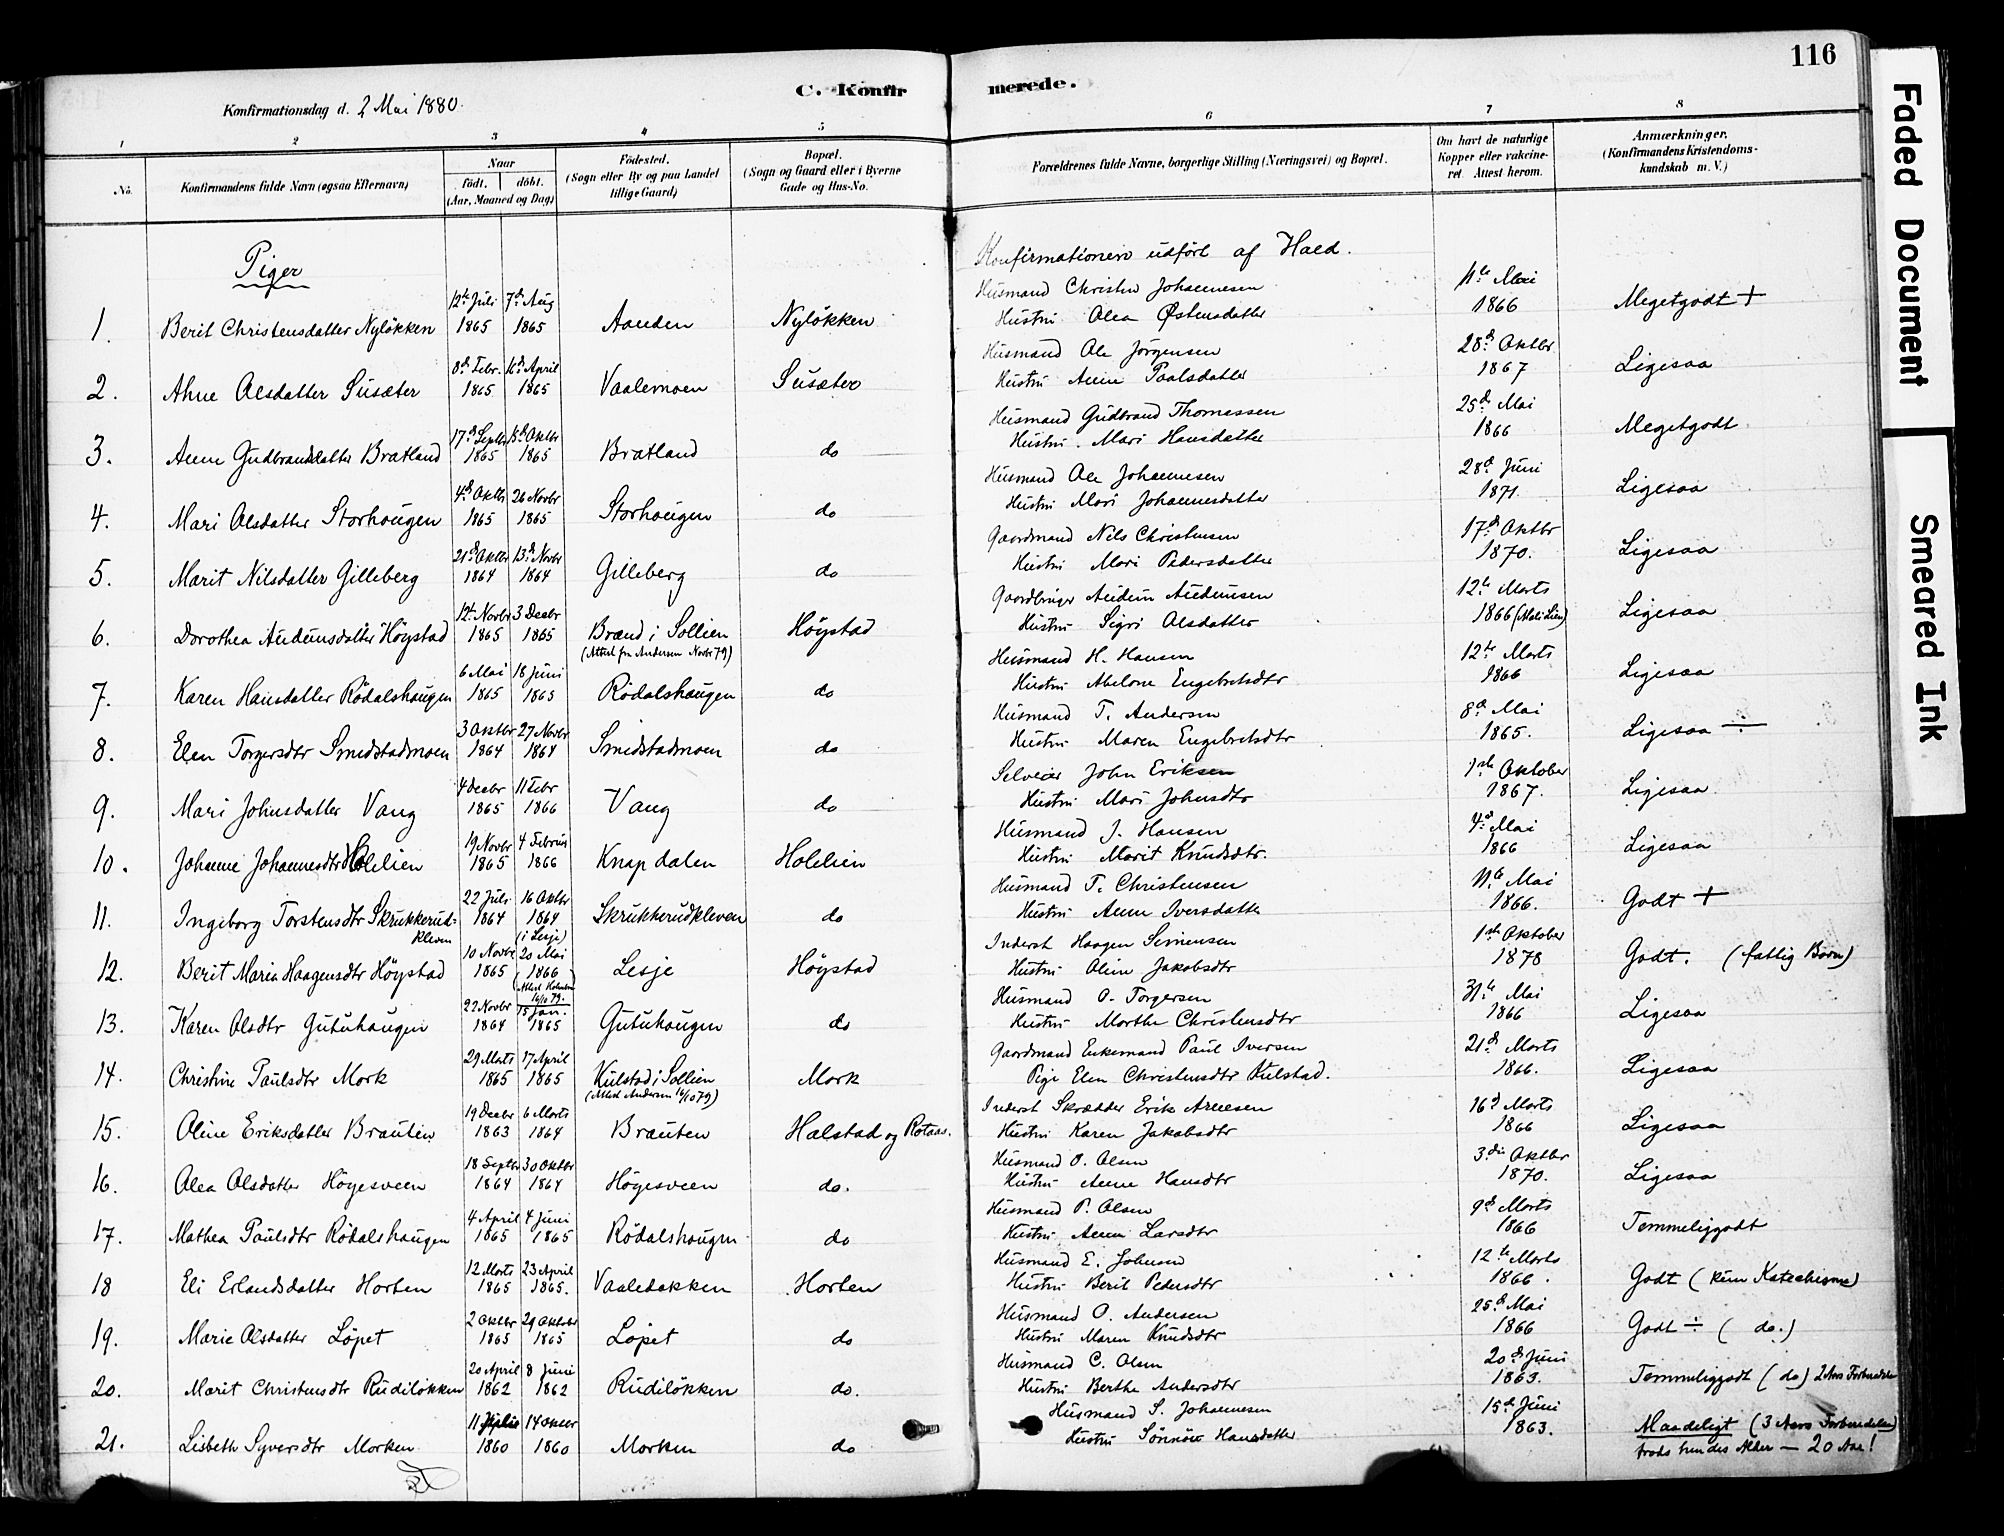 116
C. Konfirmerede.
Konfirmationsdag d. 2 Mai 1880.
1 2 3 4 5 6 7 8
No. Konfirmandens fulde Navn (ogsaa Efternavn) Naar födt. döbt. (Aar, Maaned og Dag) Födested. (Sogn eller By og paa Landet tillige Gaard) Bopæl. (Sogn og Gaard eller i Byerne Gade og Hus-No. Forældrenes fulde Navne, borgerlige Stilling (Næringsvei) og Bopæl. Om havt de naturlige Kopper eller vakcineret. Attest herom. Anmærkninger, (Konfirmandens Kristendomskundskab m. V.)
Piger
Konfirmationen udfört af Hald.
1. Berit Christensdatter Nylökken 12te Juli 1865 7de Aug 1865 Aanden Nylökken Husmand Christen Johannesen Hustru Alea Østensdatter 11te Mai 1866 Megetgodt +
2. Ahne Olsdatter Susæter 8de Febr. 1865 16de April 1865 Vaalemoen Susæter Husmand Ole Jörgensen Hustru Anne Paalsdatter 28de Oktbr 1867 Ligesaa
3. Anne Gudbrandsdatter Bratland 17de Septbr 1865 15de Oktbr 1865 Bratland do Husmand Gudbrand Thomassen Hustru Mari Hansdatter 25de Mai 1866 Megetgodt
4. Mari Olsdatter Storhougen 4de Oktbr 1865 26 Novbr 1865 Storhougen do Husmand Ole Johannesen Hustru Mari Johannesdatter 28de Juni 1871 Ligesaa
5. Marit Nilsdatter Gilleberg 21de Oktbr 1864 13de Novbr 1864 Gilleberg do Gaardmand Nils Christensen Hustru Mari Pedersdatter 17de Oktbr 1870. Ligesaa
6. Dorothea Audunsdatter Höystad 12te Novbr 1865 3 Decbr 1865 Brænd i Sollien (Attest fra Andersen Novbr 79) Höystad Gaardbruger Audun Audunsen Hustru Sigri Olsdatter 12te Marts 1866 Ligesaa
7. Karen Hansdatter Rödalshaugen 6 Mai 1865 18 Juni 1865 Rödalshaugen do Husmand H. Hansen Hustru Abelone Engebretsdtr 12te Marts 1866 Ligesaa
8. Elen Torgersdtr Smedstadmoen 3 Oktbr 1864 27 Novbr 1864 Smedstadmoen do Husmand T. Andersen Hustru Maren Engebretsdtr 8de Mai 1865. Ligesaa ÷
9. Mari Johnsdatter Vang 4 Decbr 1865 11 Febr 1866 Vang do Selveier John Eriksen Hustru Mari Johnsdtr 1ste Oktober 1867. Ligesaa
10. Johanne Johannesdtr Holelien 19 Novbr 1865 4 Februar 1866 Knapdalen Holelien Husmand J. Hansen Hustru Marit Knudsdtr. 4de Mai 1866 Ligesaa
11. Ingeborg Torstensdtr Skrukkerudkleven 22 Juli 1864 16 Oktbr 1864 Skrukkerudkleven do Husmand T. Christensen Hustru Anne Iversdatter 11te Mai 1866. Godt +
12. Berit Maria Haagensdtr Höystad 10 Novbr 1865 (i Lesje) 20 Mai 1866 (Attest 16/10 79.) Lesje Höystad Inderst Haagen Simensen Hustru Oline Jakobsdtr 1ste Oktober 1878 Godt. (fattig Barn)
13. Karen Olsdtr Gutuhaugen 22 Novbr 1864 15 Jan. 1865 Gutuhaugen do Husmand O. Torgersen Hustru Marthe Christensdtr 31te Mai 1866 Ligesaa
14. Christine Paulsdtr Mork 29 Marts 1865 17 April 1865 Hulstad i Sollien (Attest Andersen 16/10 79) Mork Gaardmand Enkemand Paul Iversen Pige Elen Christensdtr Hulstad. 21de Marts 1866. Ligesaa
15. Oline Eriksdatter Brauten 19 Decbr 1863 6 Marts 1864 Brauten Halstad og Rotaas. Inderst Skrædder Erik Arnesen Hustru Karen Jakobsdtr 16de Marts 1866 Ligesaa
16. Olea Olsdatter Högesveen 18 Septbr 1864 30 Oktbr 1864 Högesveen do. Husmand O. Olsen Hustru Anne Hansdtr 3die Oktbr 1870. Ligesaa
17. Mathea Paulsdtr Rödalshaugen 4 April 1865 4 Juni 1865 Rödalshaugen do Husmand P. Olsen Hustru Anne Larsdtr 9de Marts 1866 Temmeliggodt
18 Eli Erlandsdatter Horten 12 Marts 1865 23 April 1865. Vaaledakken Horten Husmand E. Johnsen Hustru Berit Pedersdtr 12te Marts 1866. Godt (kun Katechisme)
19. Marie Olsdatter Löpet 2 Oktbr 1865 29 Oktober 1865 Löpet do Husmand O. Andersen Hustru Maren Knudsdtr 25de Mai 1866 Godt ÷ (do.)
20. Marit Christensdtr Rudilökken 20 April 1862 8 Juni 1862 Rudilökken do. Husmand C. Olsen Hustru Berthe Andersdtr 20de Juni 1863. Temmeliggodt (do) 2 Aars Forberedelse
21. Lisbeth Syversdtr Morken 11 1860 14 Oktbr 1860 Morken do Husmand S. Johannesen Hustru Sönnöw Hansdatter 15de Juni 1863. Maadeligt (3 Aars Forberedelse) trods hendes Alder — 20 Aar!
Faded Document
Smeared Ink